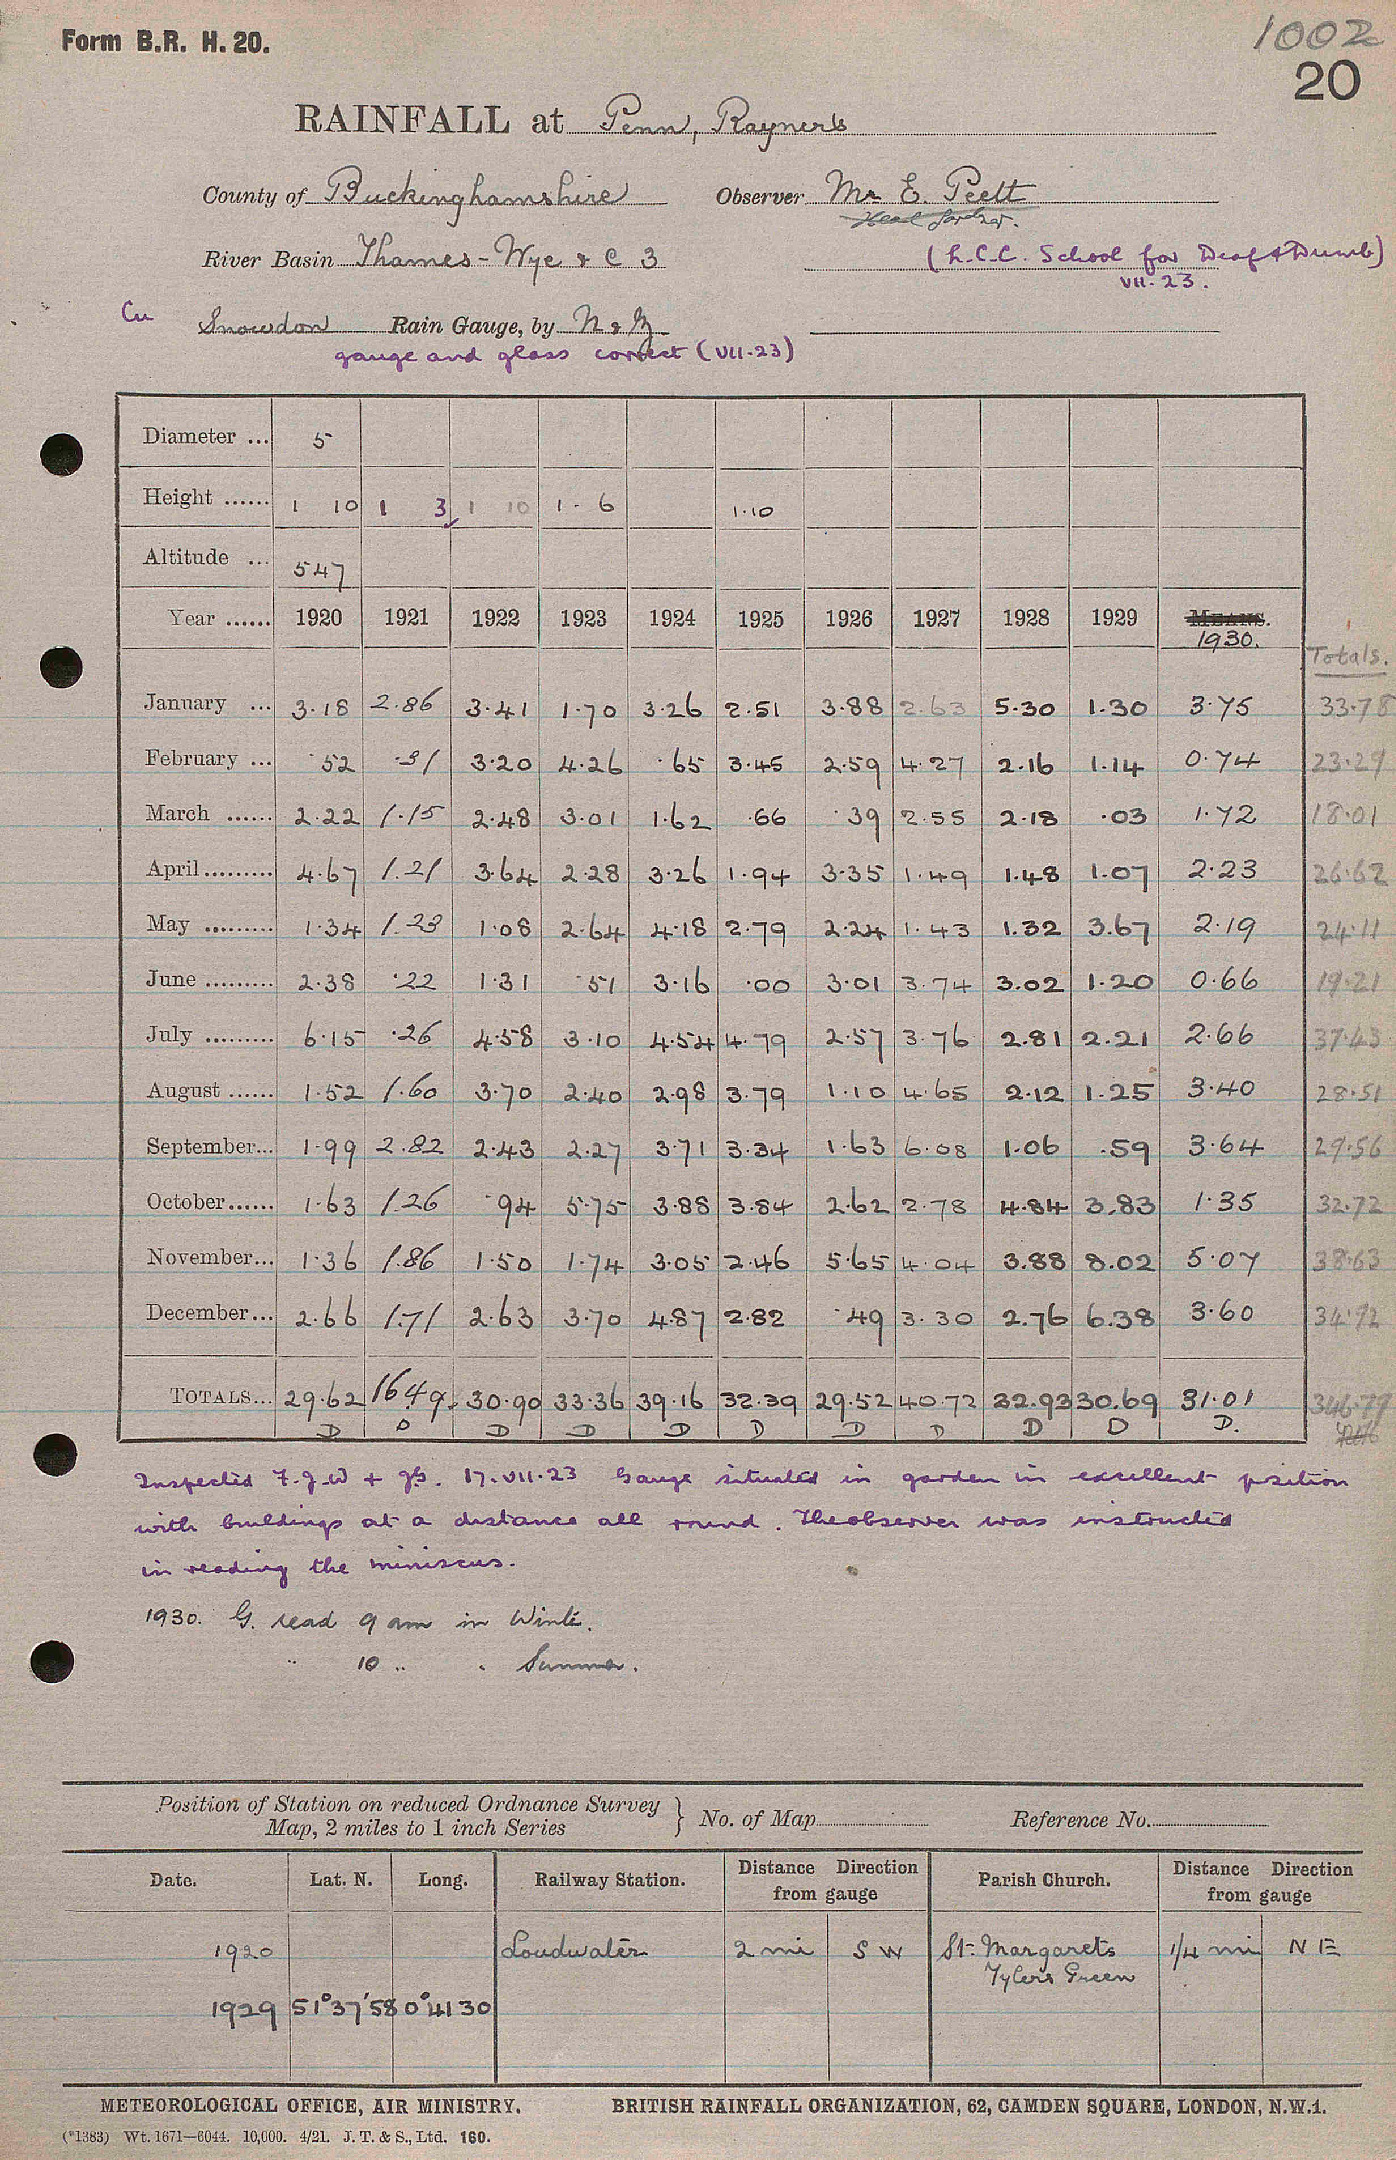 Form B.R. H. 20.
1002
20
RAINFALL at Penn, Rayners
County of Buckinghamshire Observer Mr E. Peett
River Basin Thames - Wye & C 3 (L.C.C. School for Deaf & Dumb)
VII. 23.
Cu Snowdon Rain Gauge, by N & Z
gauge and glass correct (VII.23)
Diameter ... 5
Height ...... 1 10 1 3 1 10 1 - 6 1.10
Altitude ... 547
Year ...... 1920 1921 1922 1923 1924 1925 1926 1927 1928 1929 MEANS. 1930. Totals.
January ... 3.18 2.86 3.41 1.70 3.26 2.51 3.88 2.63 5.30 1.30 3.75 33.78
February ... .52 .31 3.20 4.26 .65 3.45 2.59 4.27 2.16 1.14 0.74 23.29
March ...... 2.22 1.15 2.48 3.01 1.62 .66 .39 2.55 2.18 .03 1.72 18.01
April ......... 4.67 1.21 3.64 2.28 3.26 1.94 3.35 1.49 1.48 1.07 2.23 26.62
May ......... 1.34 1.23 1.08 2.64 4.18 2.79 2.24 1.43 1.32 3.67 2.19 24.11
June ......... 2.38 .22 1.31 .51 3.16 .00 3.01 3.74 3.02 1.20 0.66 19.21
July ......... 6.15 .26 4.58 3.10 4.54 4.79 2.57 3.76 2.81 2.21 2.66 37.43
August ...... 1.52 1.60 3.70 2.40 2.98 3.79 1.10 4.65 2.12 1.25 3.40 28.51
September... 1.99 2.82 2.43 2.27 3.71 3.34 1.63 6.08 1.06 .59 3.64 29.56
October ...... 1.63 1.26 .94 5.75 3.88 3.84 2.62 2.78 4.84 3.83 1.35 32.72
November... 1.36 1.86 1.50 1.74 3.05 2.46 5.65 4.04 3.88 8.02 5.07 38.63
December... 2.66 1.71 2.63 3.70 4.87 2.82 .49 3.30 2.76 6.38 3.60 34.92
TOTALS... 29.62 16.49 30.90 33.36 39.16 32.39 29.52 40.72 32.93 30.69 31.01 346.79
D D D D D D D D D D D.
Inspected F.J.W + JG. 17.VII.23 Gauge situated in garden in excellent position
with buildings at a distance all round. The observer was instructed
in reading the miniscus.
1930. G. read 9 am in Winter.
" 10 " " Summer.
Position of Station on reduced Ordnance Survey
Map, 2 miles to 1 inch Series } No. of Map Reference No.
Date. Lat. N. Long. Railway Station. Distance Direction from gauge Parish Church. Distance Direction from gauge
1920 Loudwater 2 mi S W St. Margarets 1/4 mi N E
Tylers Green
1929 51°37'58 0°41 30
METEOROLOGICAL OFFICE, AIR MINISTRY. BRITISH RAINFALL ORGANIZATION, 62, CAMDEN SQUARE, LONDON, N.W.1.
(*1383) Wt. 1671—6044. 10,000. 4/21. J. T. & S., Ltd. 160.